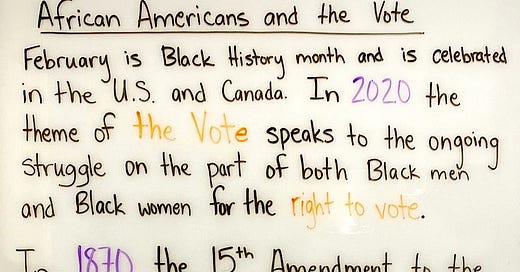 African Americans and the Vote
February is Black History month and is celebrated
in the U.S. and Canada. In 2020 the
theme of the Vote speaks to the ongoing
struggle on the part of both Black men
and Black women for the right to vote.
In 1870 the 15th Amendment to the